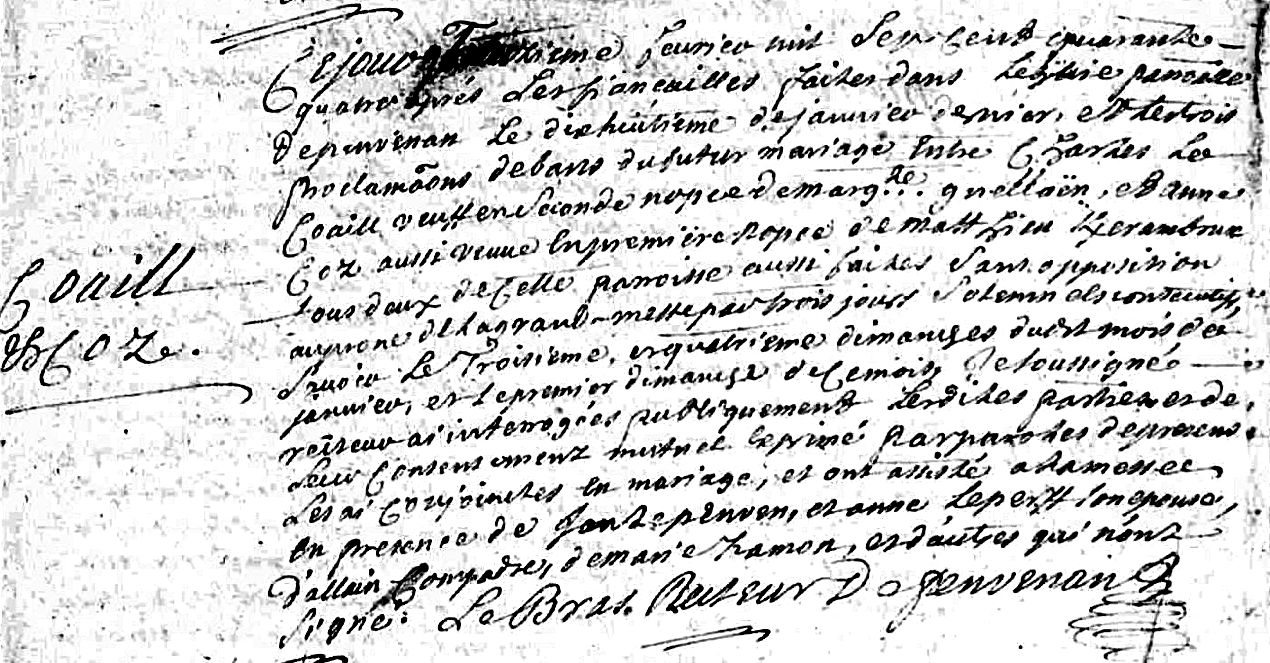 Ce jour troisieme fevrier mil sept cent quarante
quatre après les fiançailles faites dans l'eglise paroalle
de penvenan le dixhuitiéme de janvier dernier, et les trois
proclamaons de bans du futur mariage entre Charles Le
Coaill veuff en seconde nopce de marg.te guellaën, et anne
Coz aussi veuve en premiére nopce de Matthieu Kerambrun
tous deux de cette paroisse aussi faites sans opposition
au prone de la grand-messe par trois jours solemnels consecutifs,
sçavoir le troisiéme, et quatriéme dimanches dudit mois de
janvier, et le premier dimanche de ce mois, Je soussigné
recteur ai interrogées publiquement lesdites parties et de
leur consentement mutuel exprimé par paroles de present
les ai conjointes en mariage, et ont assisté a la messe
en presence de penven, et anne Leperff son epouse,
d'allain Compadre, de marie hamon, et d'autres qui n'ont
signé. Le Bras. Recteur De penvenan
Coaill
& Coz.